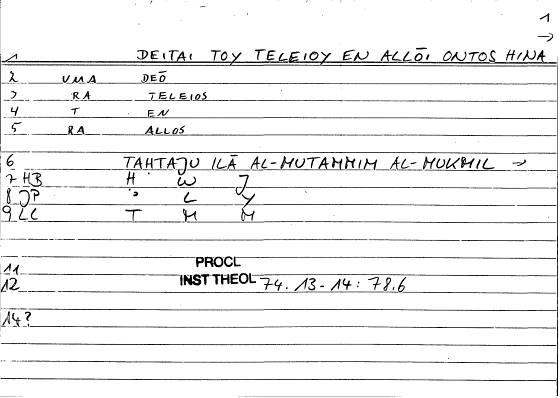 1
→
1 DEITAI TOY TELEIOY EN ALLŌI ONTOS HINA
2 VMA DEŌ
3 RA TELEIOS
4 T EN
5 RA ALLOS
6 TAHTAJU ILĀ AL-MUTAMMIM AL-MUKMIL →
7 HB H W J
8 JP L Y
9 LC T M M
11 PROCL
12 INST THEOL 74. 13-14: 78.6
14?